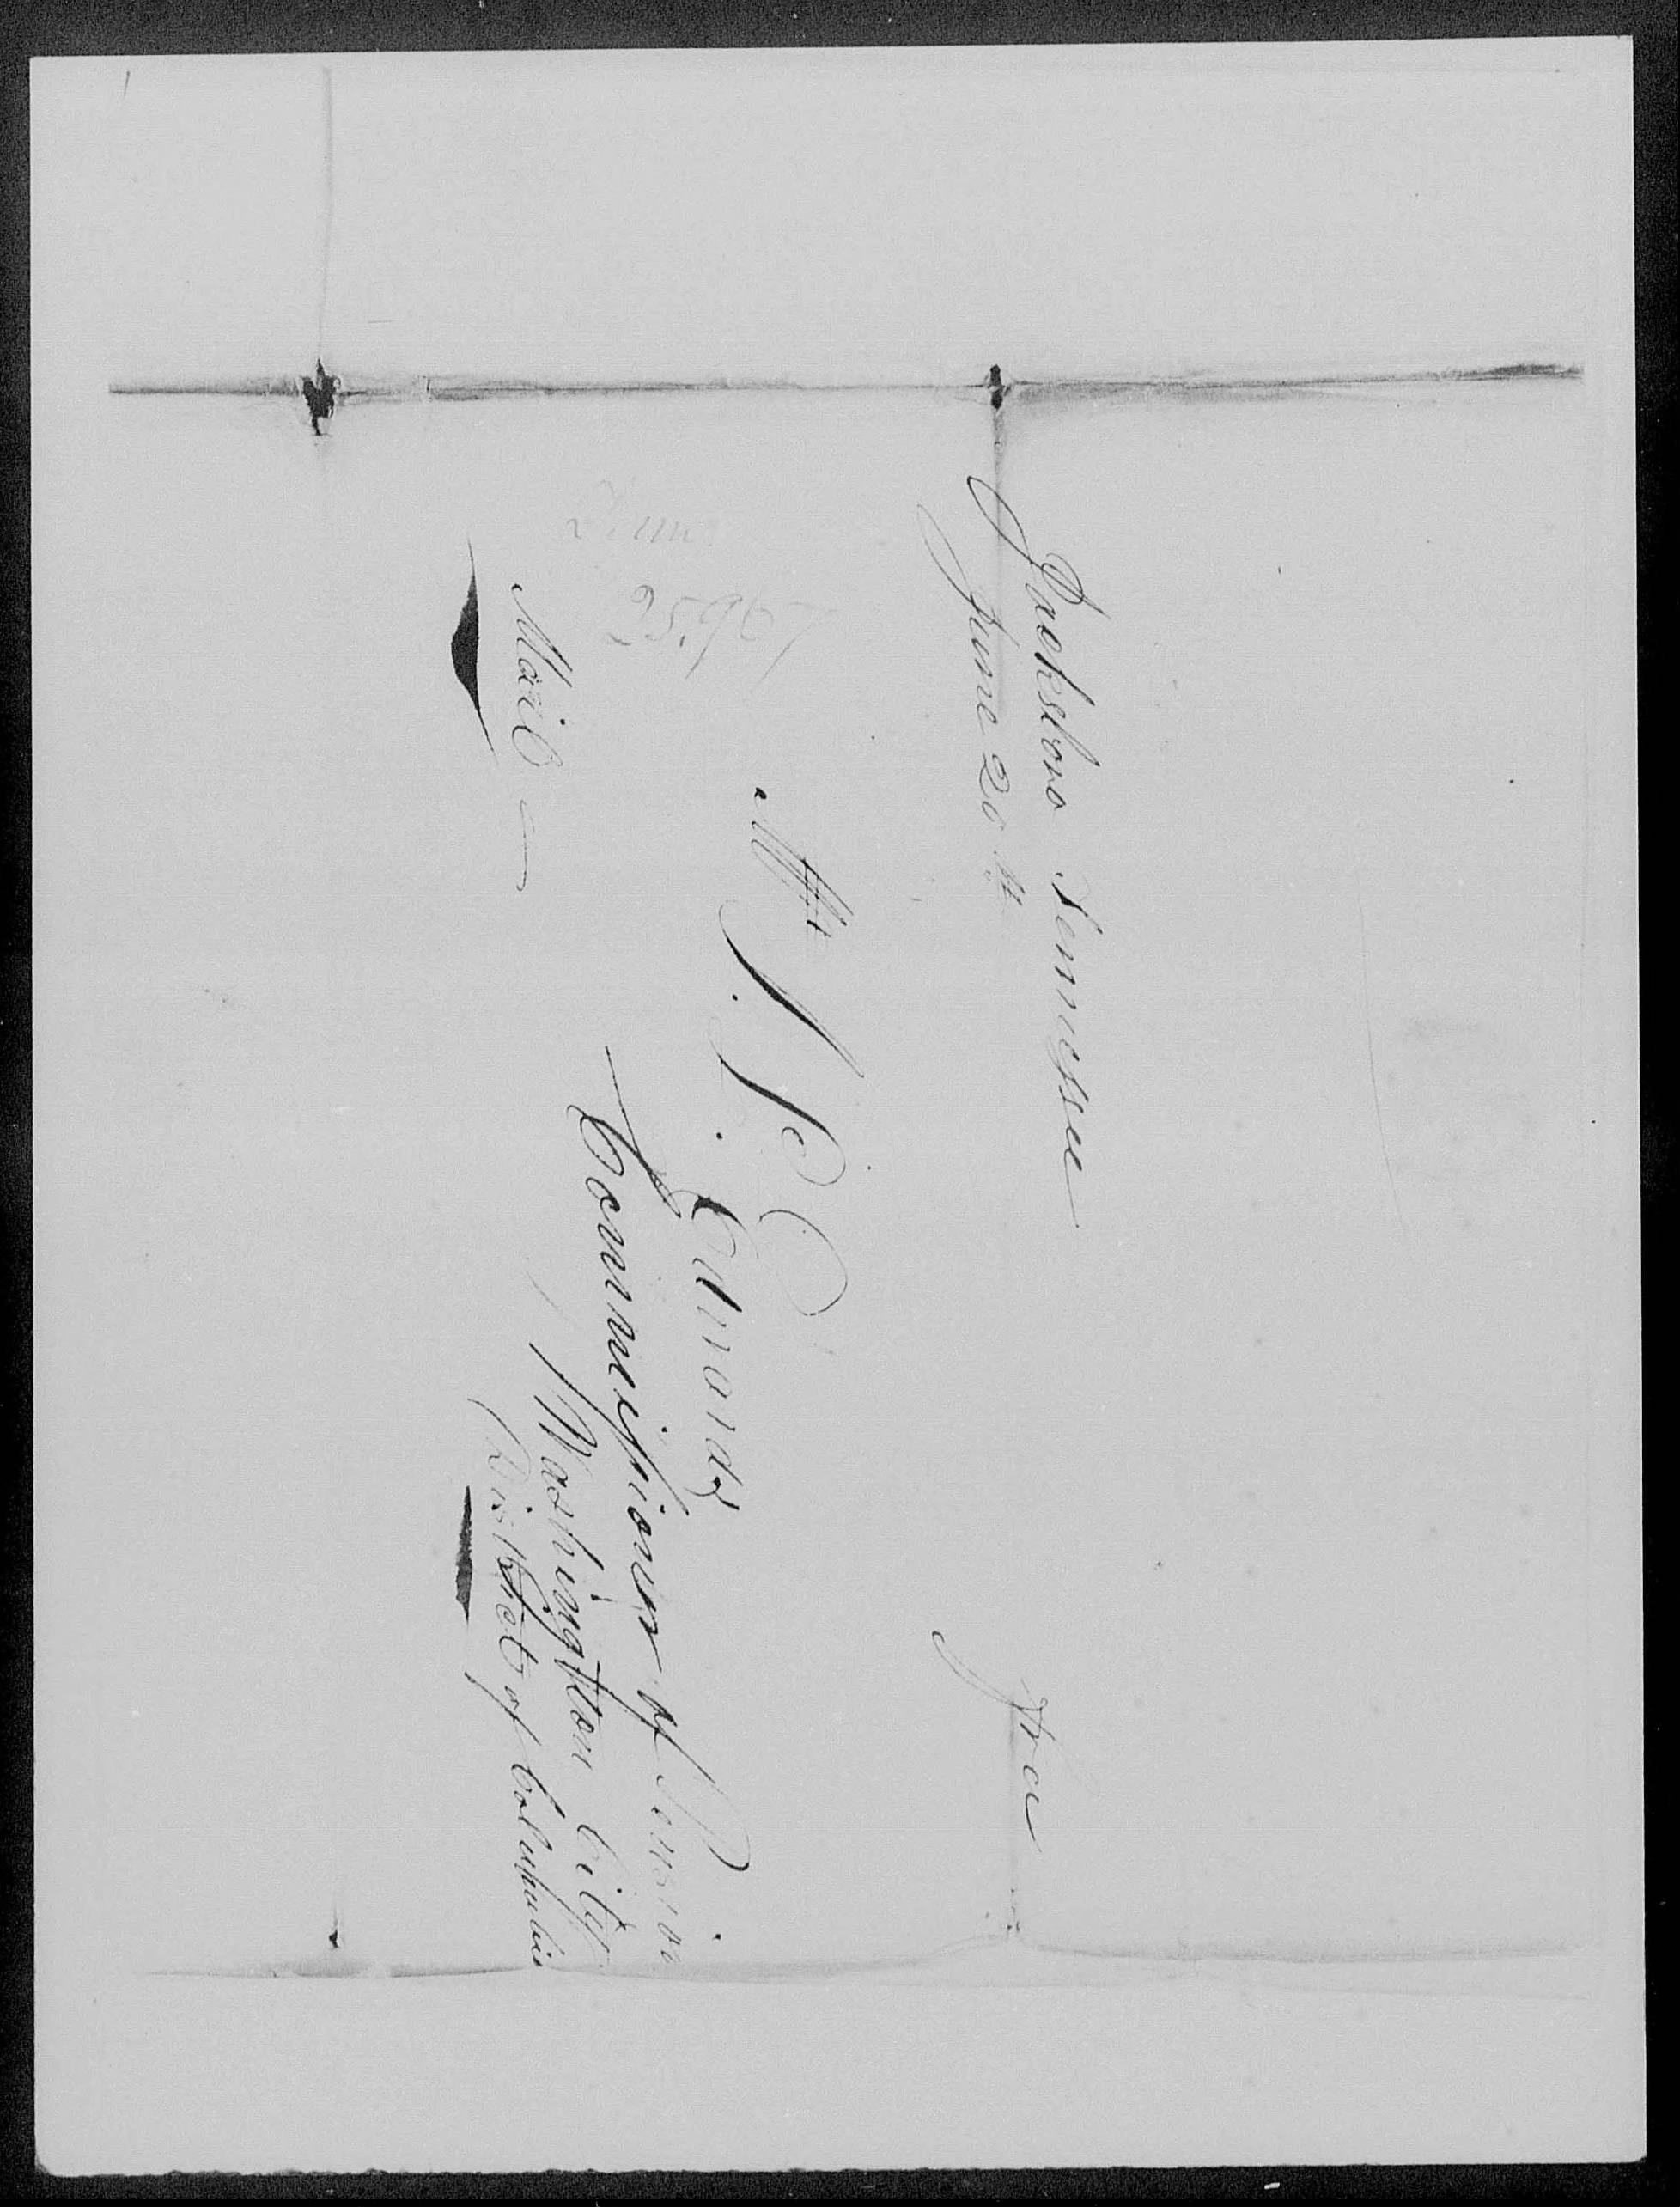 Jacksboro Tennessee
June 20th
free
Mr J. L. Edwards
Commissioner of Pension
Washington City
District of Columbia
Mail